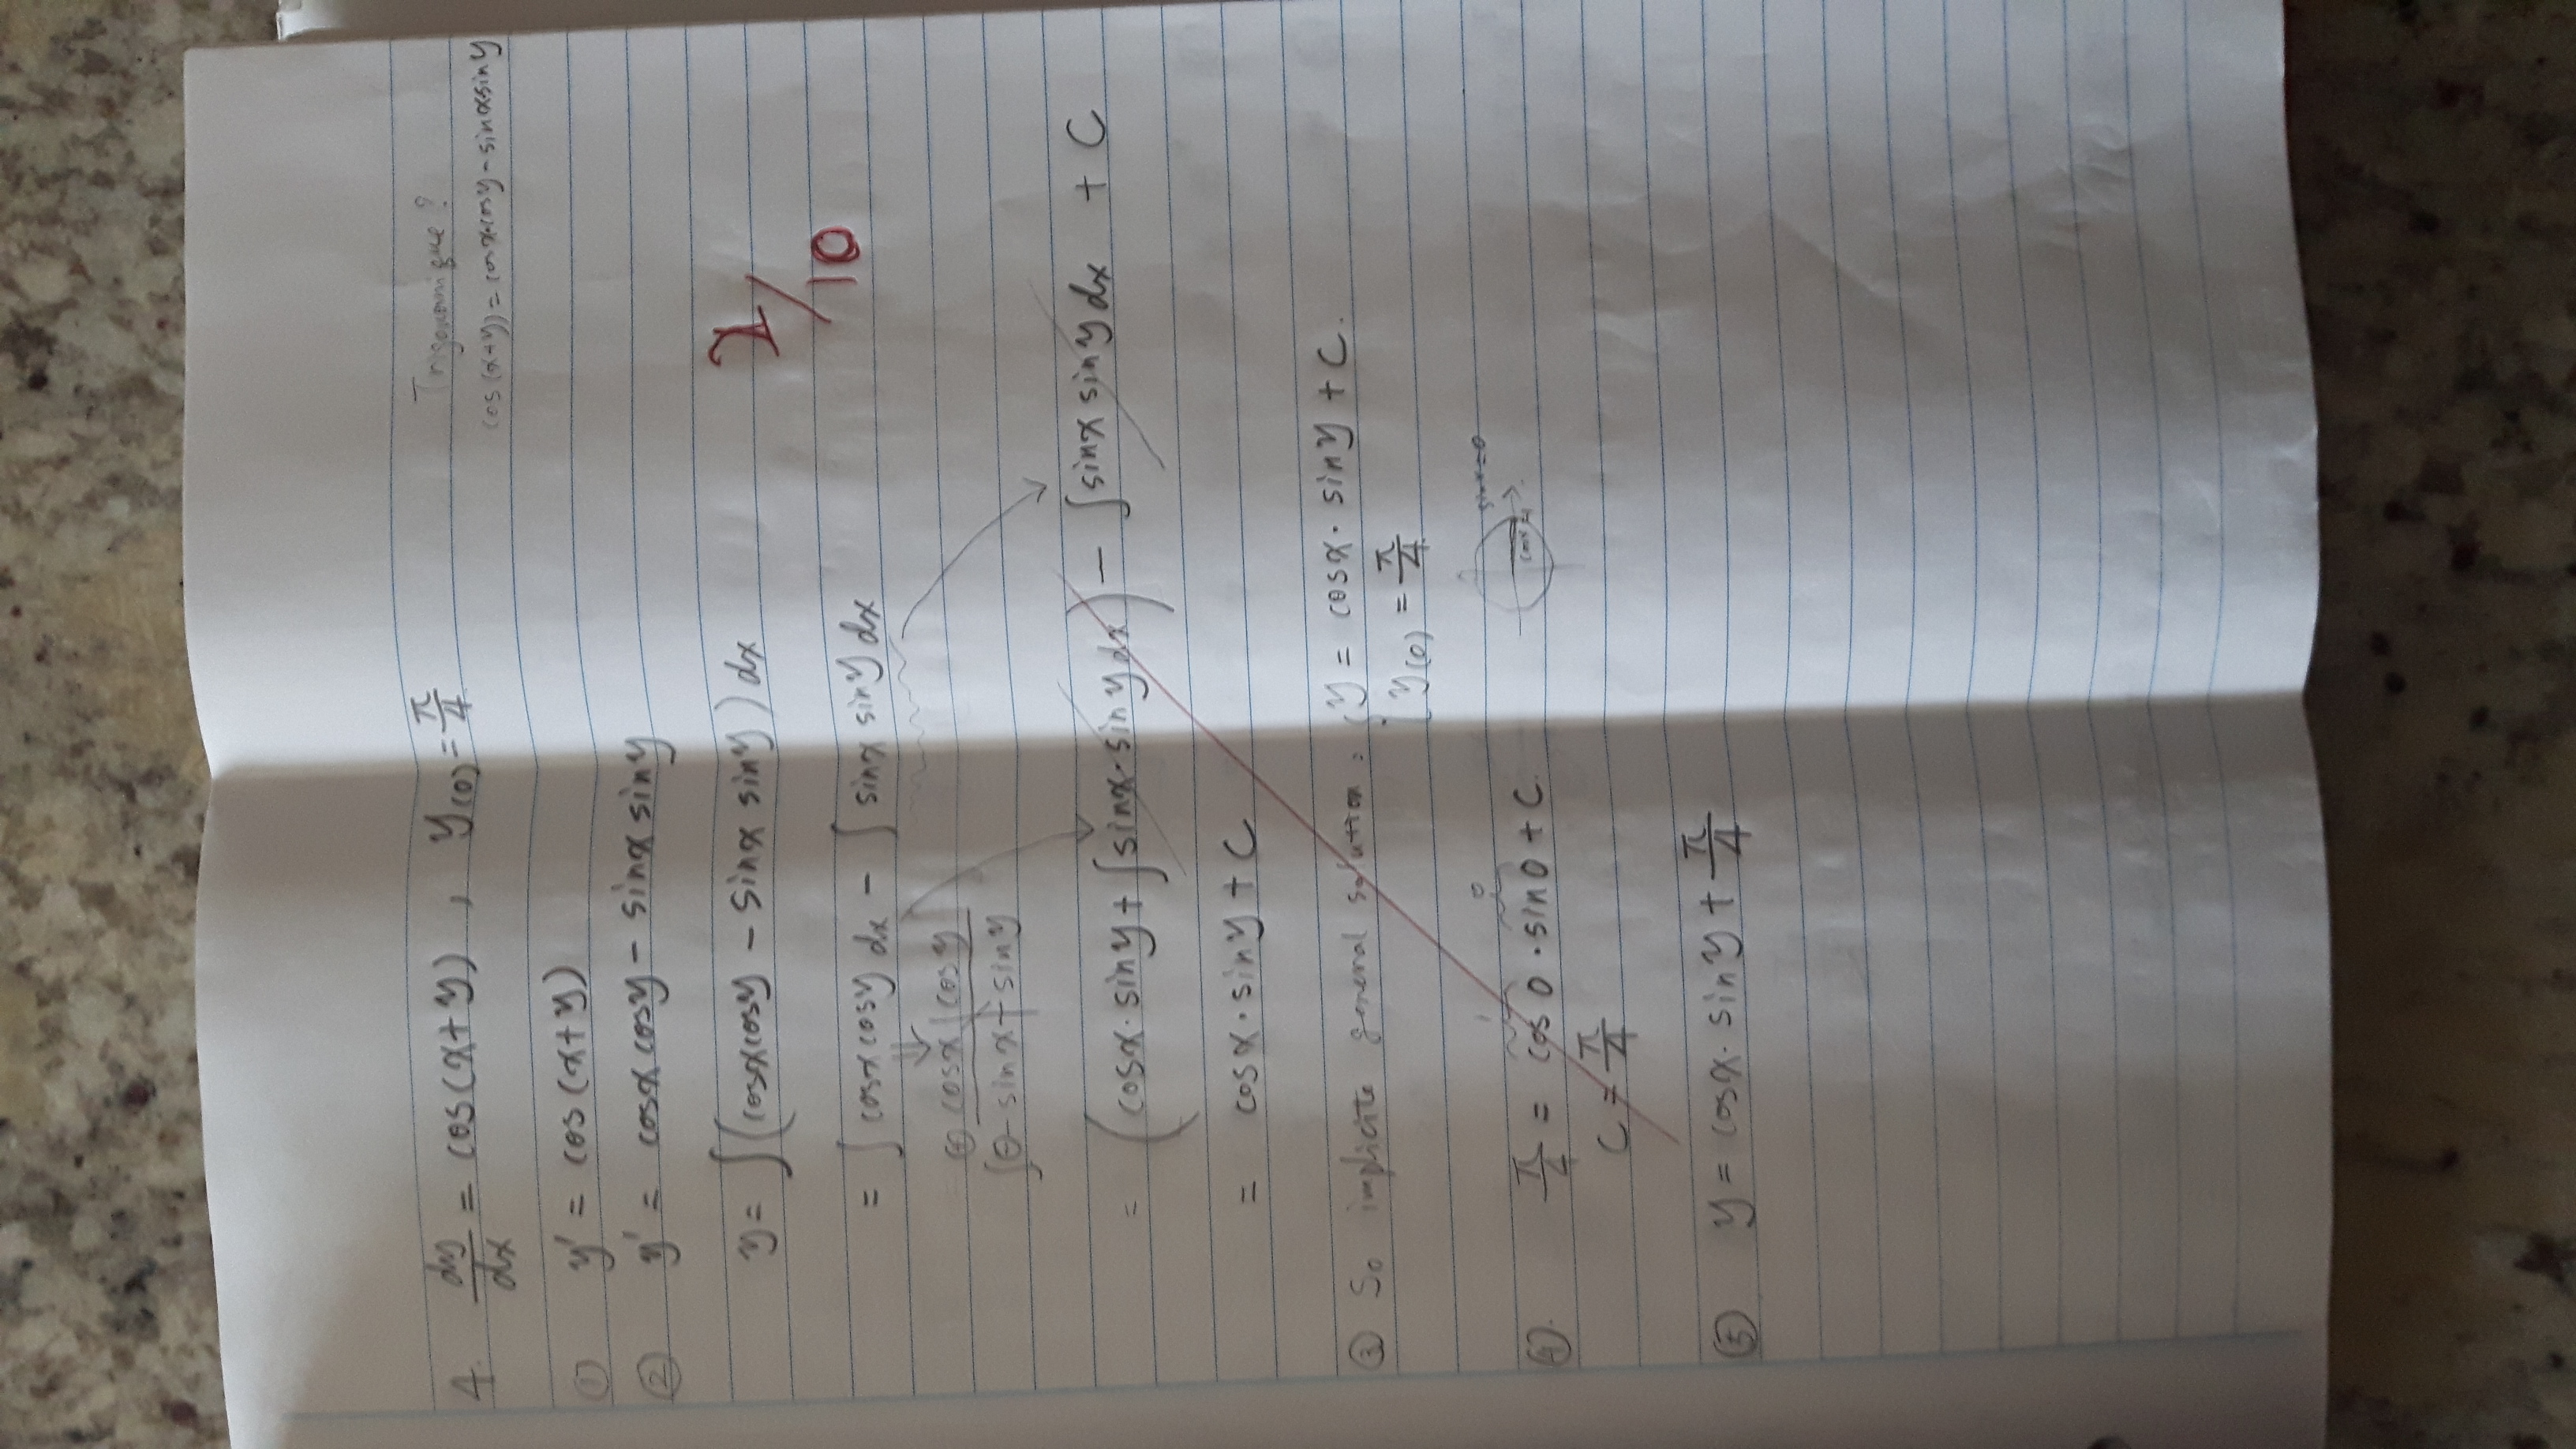 Trigonomique?
4. dy/dx = cos(x+y), y(0) = π/4
cos(x+y) = cosx·cosy - sinx·siny
① y' = cos(x+y)
② y' = cosx cosy - sinx siny
y = ∫(cosxcosy - sinx siny) dx
2/10
= ∫cosxcosy dx - ∫sinx siny dx
⊕ cosx | cosy
∫⊖ -sinx + siny
= (cosx·siny + ∫sinx·siny dx) - ∫sinx siny dx + C
= cosx·siny + C
③ So implicite general solution : { y = cosx·siny + C.
y(0) = π/4
sinx=0
1 0
④. π/4 = cos0·sin0 + C.
C = π/4
⑤ y = cosx·siny + π/4